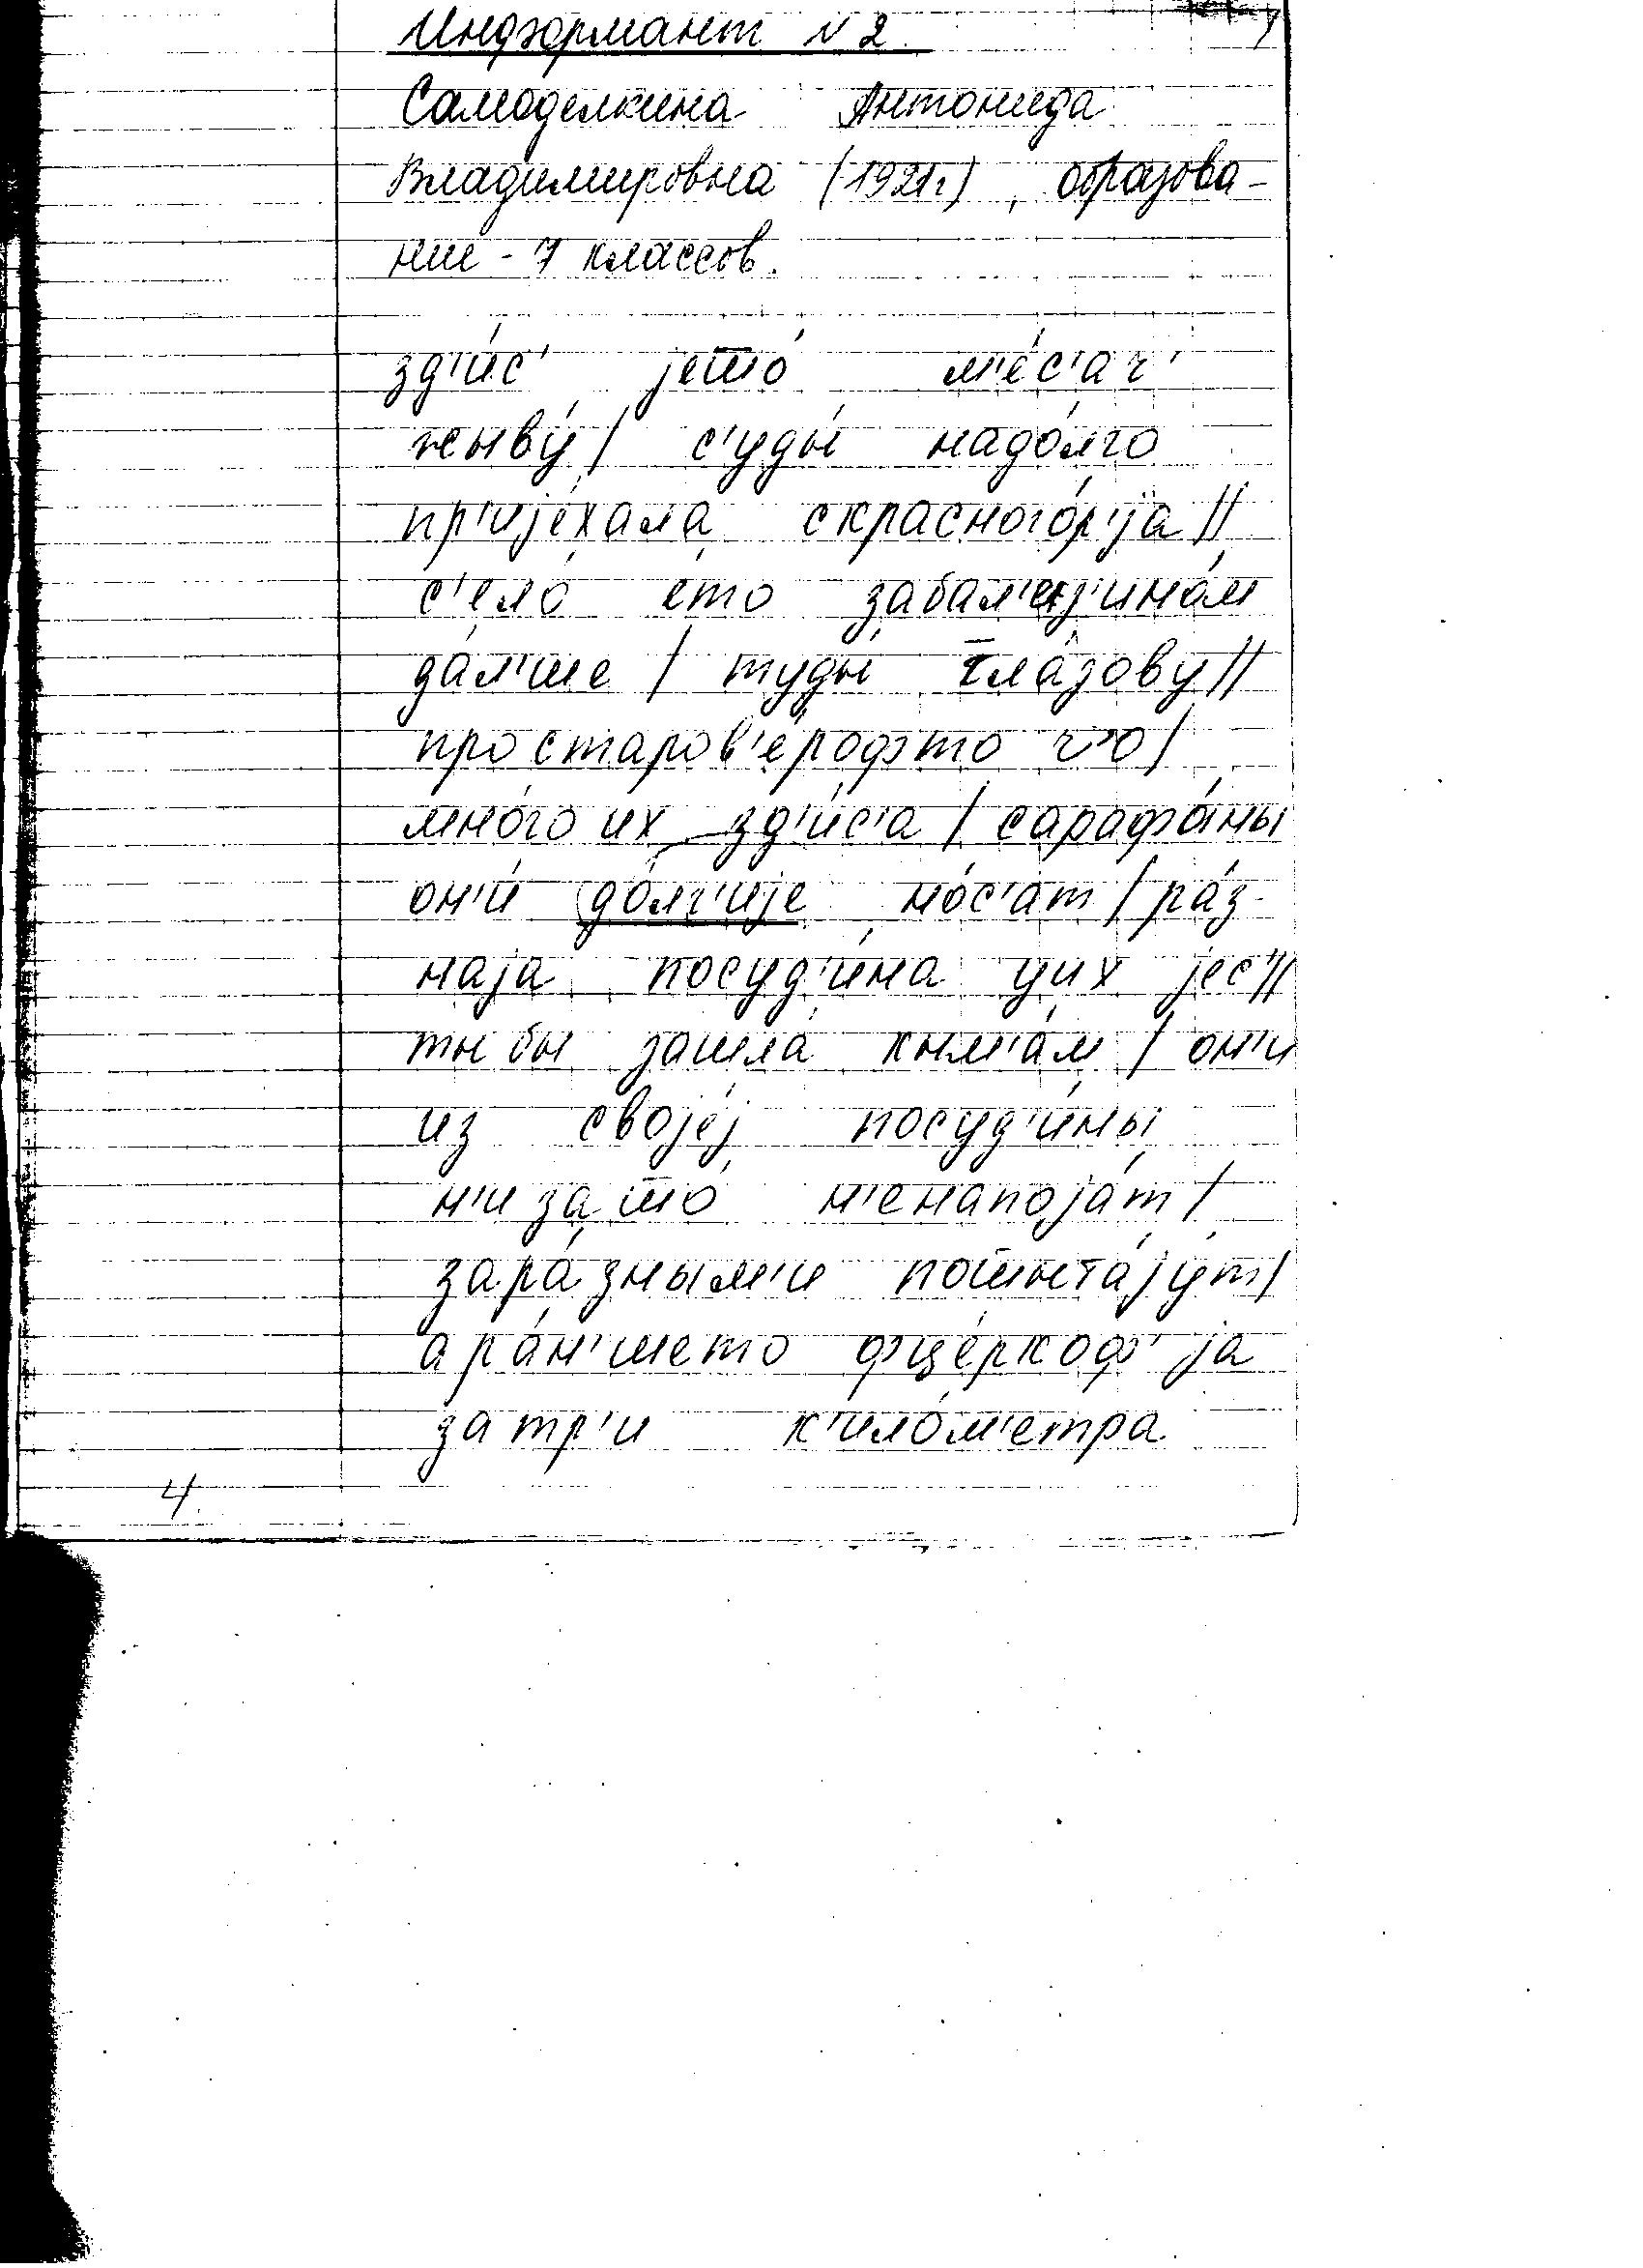 Информант N 2.
Самоделкина Антонида
Владимировна (1921г), образова-
ние - 7 классов.
зд'и́с' јешо́ м'е́с'ач'
жыву́ / с'уды́ надо́лго
пр'ије́хала скрасного́р'ја //
с'ело́ ето забал'ез'ино́м
да́л'ше / туды́ г̅ла́зову //
простаров'е́рофто ч'о /
мно́го их зд'и́с'а / сарафа́ны
он'и́ до́лг'ије но́с'ат / ра́з-
наја посуд'и́на уих јес' //
ты бы зашла́ кым'а́м / он'и
из своје́ј посуд'и́ны
н'и за шо́ н'енапоја́т /
зара́зным'и пошыта́јут /
а ра́н'шето фце́ркоф' ја
за тр'и к'ило́м'етра
4.